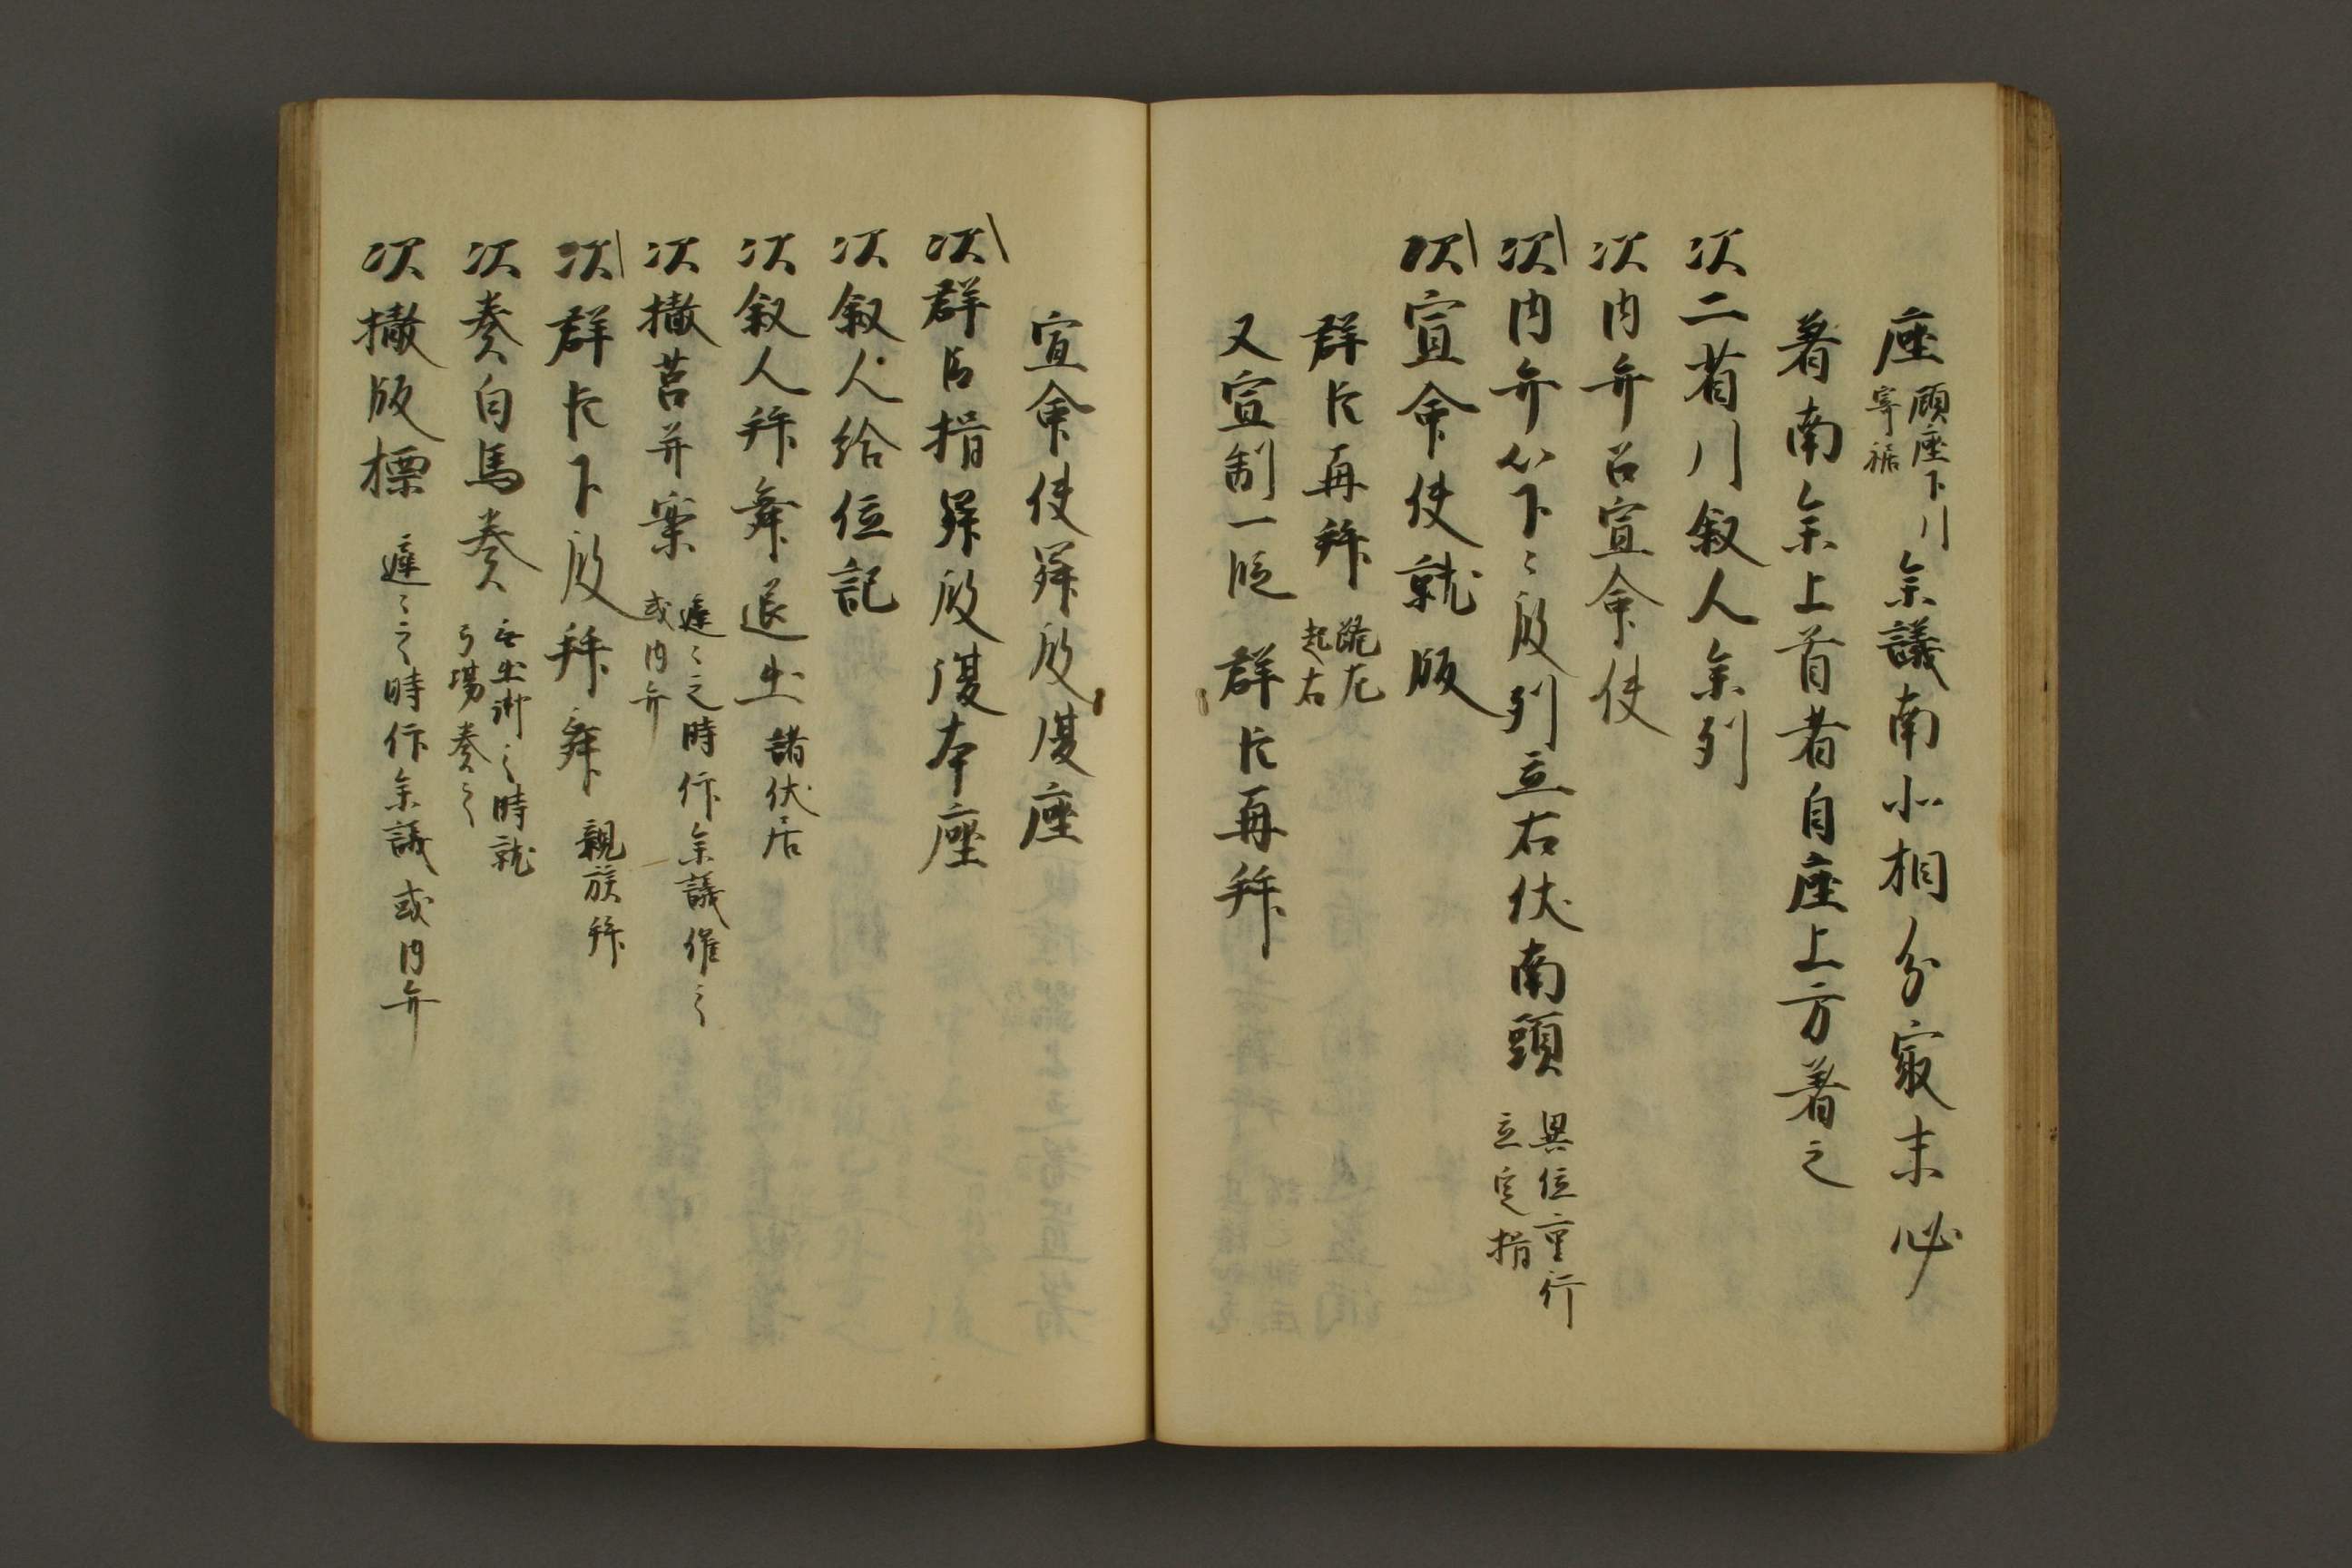 座 顧座下川 寄裾 参議南北相分最末必
着南参上首者自座上方着之
次二省引叙人参列
次内弁召宣命使
次内弁以下々殿列立右仗南頭 異位重行 立定揖
次宣命使就版
群臣再拝 跪左 起右
又宣制一段 群臣再拝
宣命使昇殿復座
次群臣揖昇殿復本座
次叙人給位記
次叙人拝舞退出 諸仗居
次撤筥并案 遅々之時仰参議催之 或内弁
次群臣下殿拝舞 親族拝
次奏白馬奏 無出御之時就 弓場奏之
次撤版標 遅々之時仰参議 或内弁